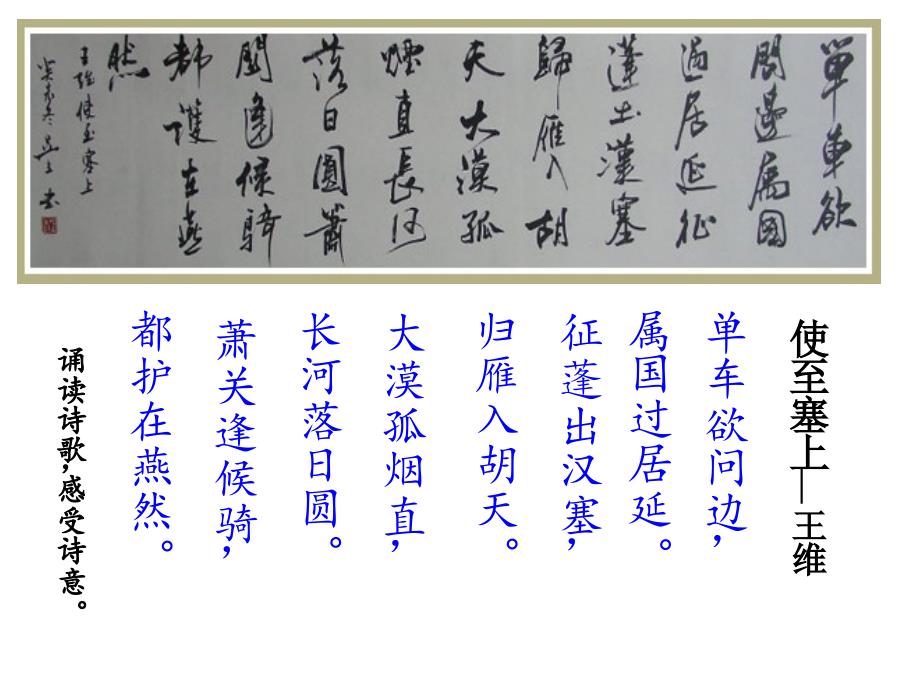 單車欲
問邊屬國
過居延征
蓬出漢塞
歸雁入胡
天大漠孤
煙直長河
落日圓蕭
關逢候騎
都護在燕
然
王維使至塞上
使至塞上—王维
单车欲问边,
属国过居延。
征蓬出汉塞,
归雁入胡天。
大漠孤烟直,
长河落日圆。
萧关逢候骑,
都护在燕然。
诵读诗歌,感受诗意。